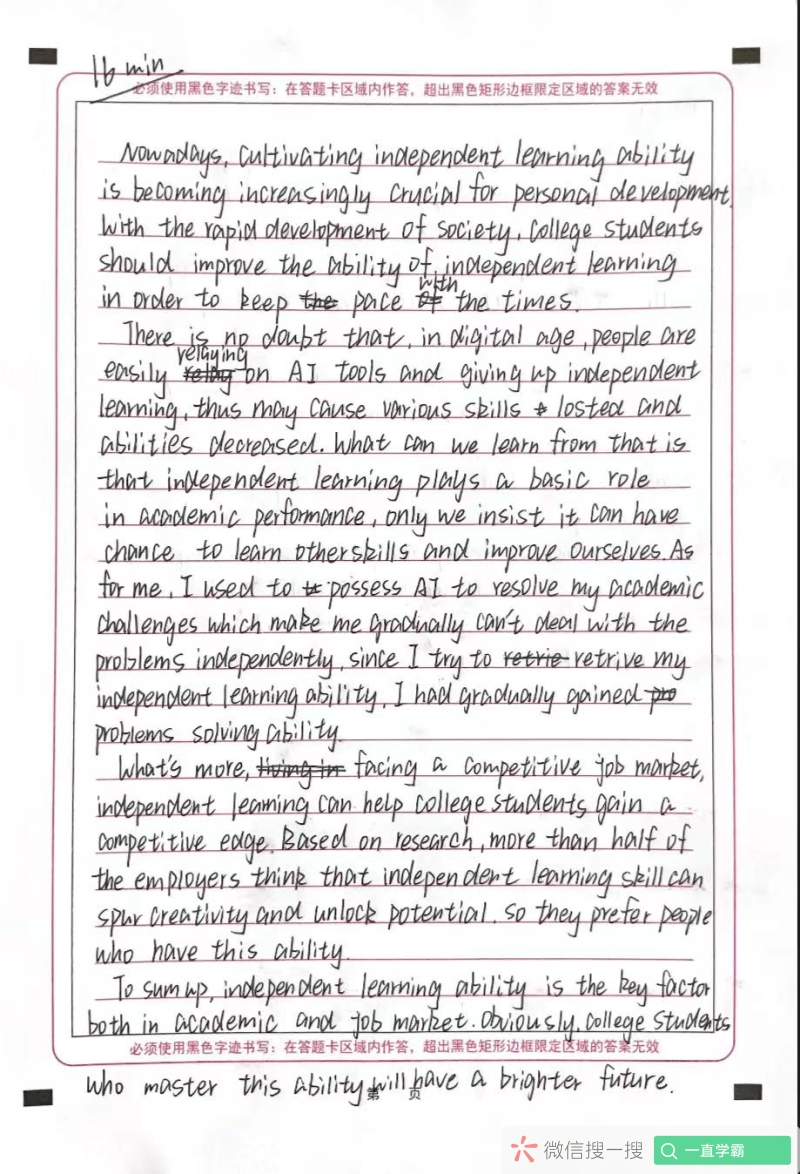 16 min
必须使用黑色字迹书写：在答题卡区域内作答，超出黑色矩形边框限定区域的答案无效
Nowadays, cultivating independent learning ability
is becoming increasingly crucial for personal development.
With the rapid development of society, college students
should improve the ability of independent learning
in order to keep the pace of with the times.
There is no doubt that, in digital age, people are
easily relay relaying on AI tools and giving up independent
learning, thus may cause various skills losted and
abilities decreased. What can we learn from that is
that independent learning plays a basic role
in academic performance, only we insist it can have
chance to learn other skills and improve ourselves. As
for me, I used to possess AI to resolve my academic
challenges which make me gradually can't deal with the
problems independently, since I try to retrie retrive my
independent learning ability, I had gradually gained pro
problems solving ability.
What's more, living in facing a competitive job market,
independent learning can help college students gain a
competitive edge. Based on research, more than half of
the employers think that independent learning skill can
spur creativity and unlock potential. So they prefer people
who have this ability.
To sum up, independent learning ability is the key factor
both in academic and job market. Obviously, college students
必须使用黑色字迹书写：在答题卡区域内作答，超出黑色矩形边框限定区域的答案无效
who master this ability will have a brighter future.
第 页
微信搜一搜 一直学霸